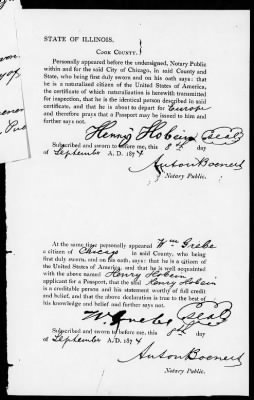 STATE OF ILLINOIS.
COOK COUNTY.
Personally appeared before the undersigned, Notary Public
within and for the said City of Chicago, in said County and
State, who being first duly sworn and on his oath says: that he
is a naturalized citizen of the United States of America,
the certificate of which naturalization is herewith transmitted
for inspection, that he is the identical person described in said
certificate, and that he is about to depart for Europe
and therefore prays that a Passport may be issued to him and
further says not.
Henry Hobein (Seal)
Subscribed and sworn to before me, this 8th day
of September A. D. 1874
Anton Boenert
Notary Public.
At the same time personally appeared Wm Grebe
a citizen of Chicago in said County, who being
first duly sworn, and on his oath, says: that he is a citizen of
the United States of America, and that he is well acquainted
with the above named Henry Hobein
applicant for a Passport, that the said Henry Hobein
is a creditable person and his statement worthy of full credit
and belief, and that the above declaration is true to the best of
his knowledge and belief and further says not.
W. Grebe (Seal)
Subscribed and sworn to before me, this 8th day
of September A. D. 1874
Anton Boenert
Notary Public.